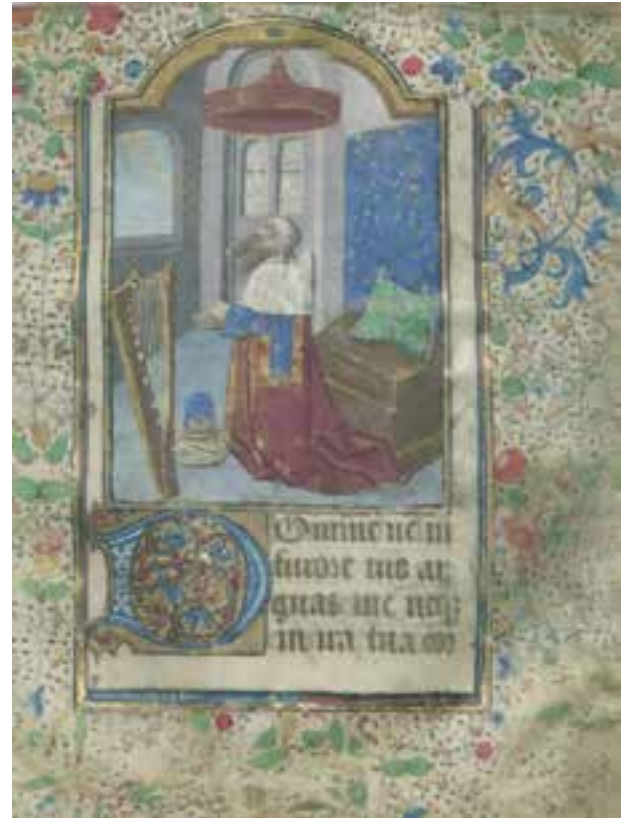 Domine ne in
furore tuo ar
guas me neq3
in ira tua co